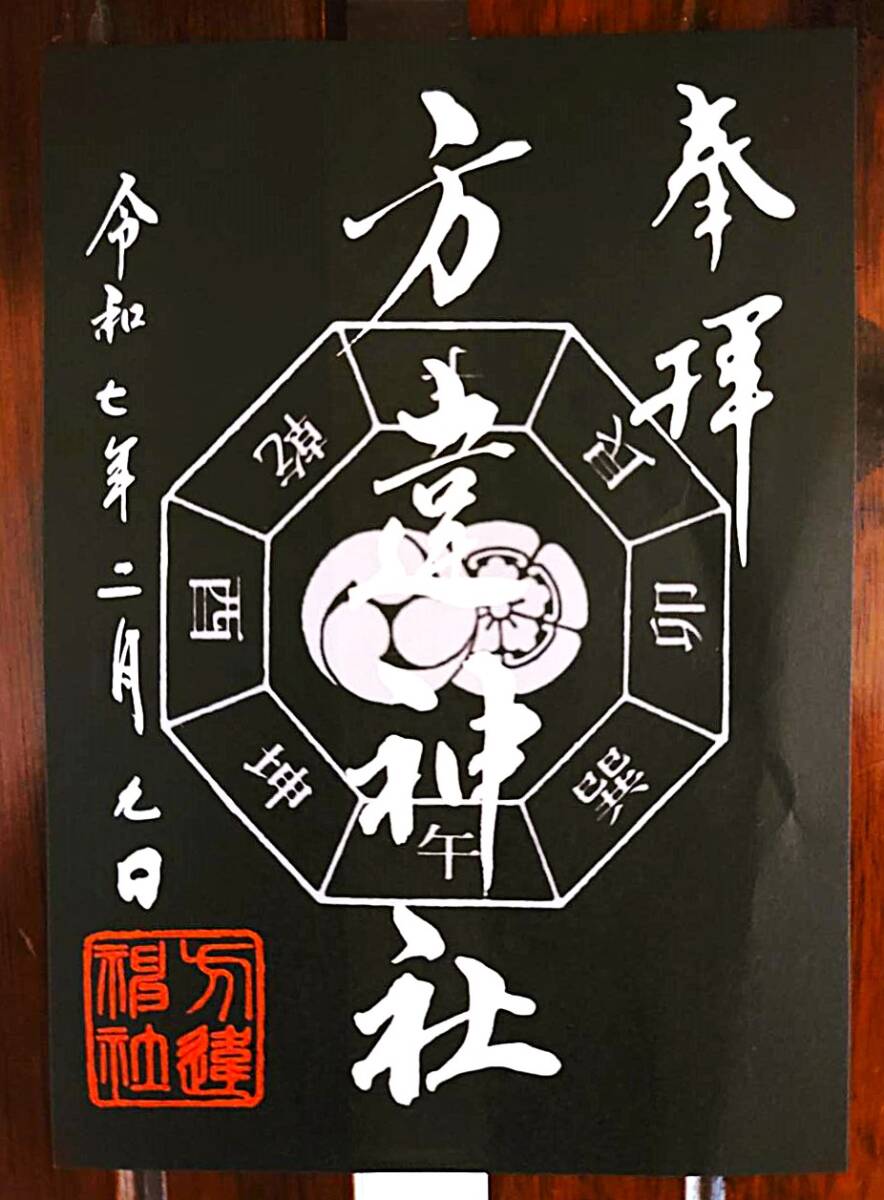 奉拝
方違神社
令和七年二月九日
艮
卯
巽
午
坤
酉
乾
方違
神社